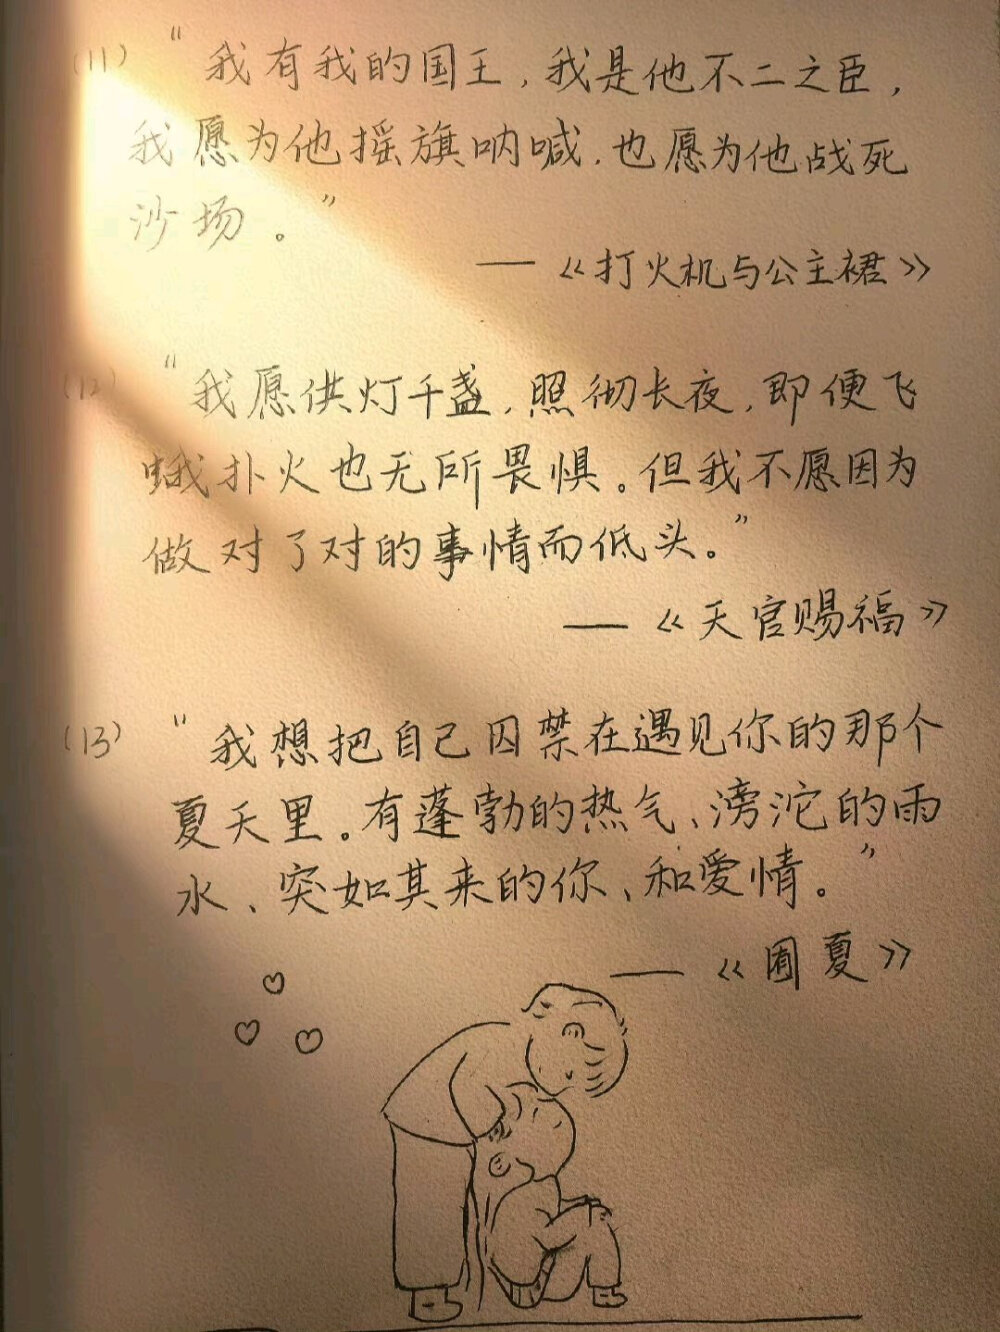 (11) “我有我的国王，我是他不二之臣，
我愿为他摇旗呐喊．也愿为他战死
沙场。”
——《打火机与公主裙》
(12) “我愿供灯千盏，照彻长夜，即便飞
蛾扑火也无所畏惧。但我不愿因为
做对了对的事情而低头。”
——《天官赐福》
(13) “我想把自己囚禁在遇见你的那个
夏天里。有蓬勃的热气、滂沱的雨
水、突如其来的你、和爱情。”
——《囿夏》